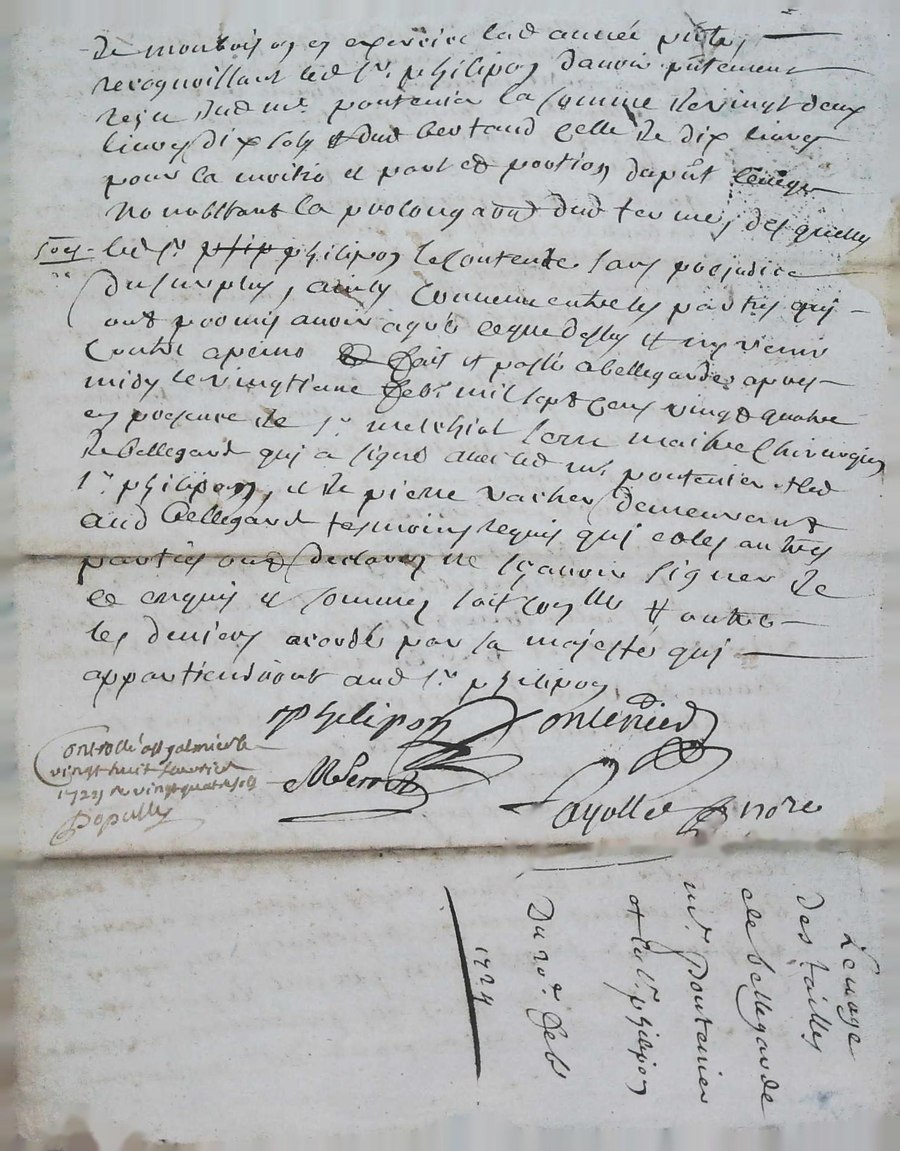 de monboison en exercice lad année pnte,
recognoillant led sr. philipon davoir pntement
reçu dud mr. pontenier la somme de vingt deux
livres dix sols & dud bertand celle de dix livres
pour la moitié et part et portion dupnt
nonobstant la prolongaõn dud terme, desquelles
led sr. philipon se contente sans prejudice
du surplus, ainsy convenu entre les parties qui
ont promis avoir agréé ce que dessus et ny venir
contre a peine fait et passé a bellegarde apres
midy le vingtieme febr. mil sept cens vingt quatre
en presence de sr. melchiol serre maitre chirurgien
de bellegard qui a signé avec led mr. pontenier & led
sr. philipon, et de pierre vacher demeurant
aud bellegard tesmoins requis qui et les autres
parties ont declarez ne sçavoir signer de
ce enquis et sommez & outre
les deniers acordés par sa majesté qui
appartiendront aud sr. philipon
Philipon Pontenied
MSerre
Payolle nore
Controllé a st galmier le
vingt huit fevrier
1724 R vingt quatre sols
Popully
Leuage
des tailles
de bellegarde
mr. Pontenier
et led sr. philipon
Du 20e. feb
1724